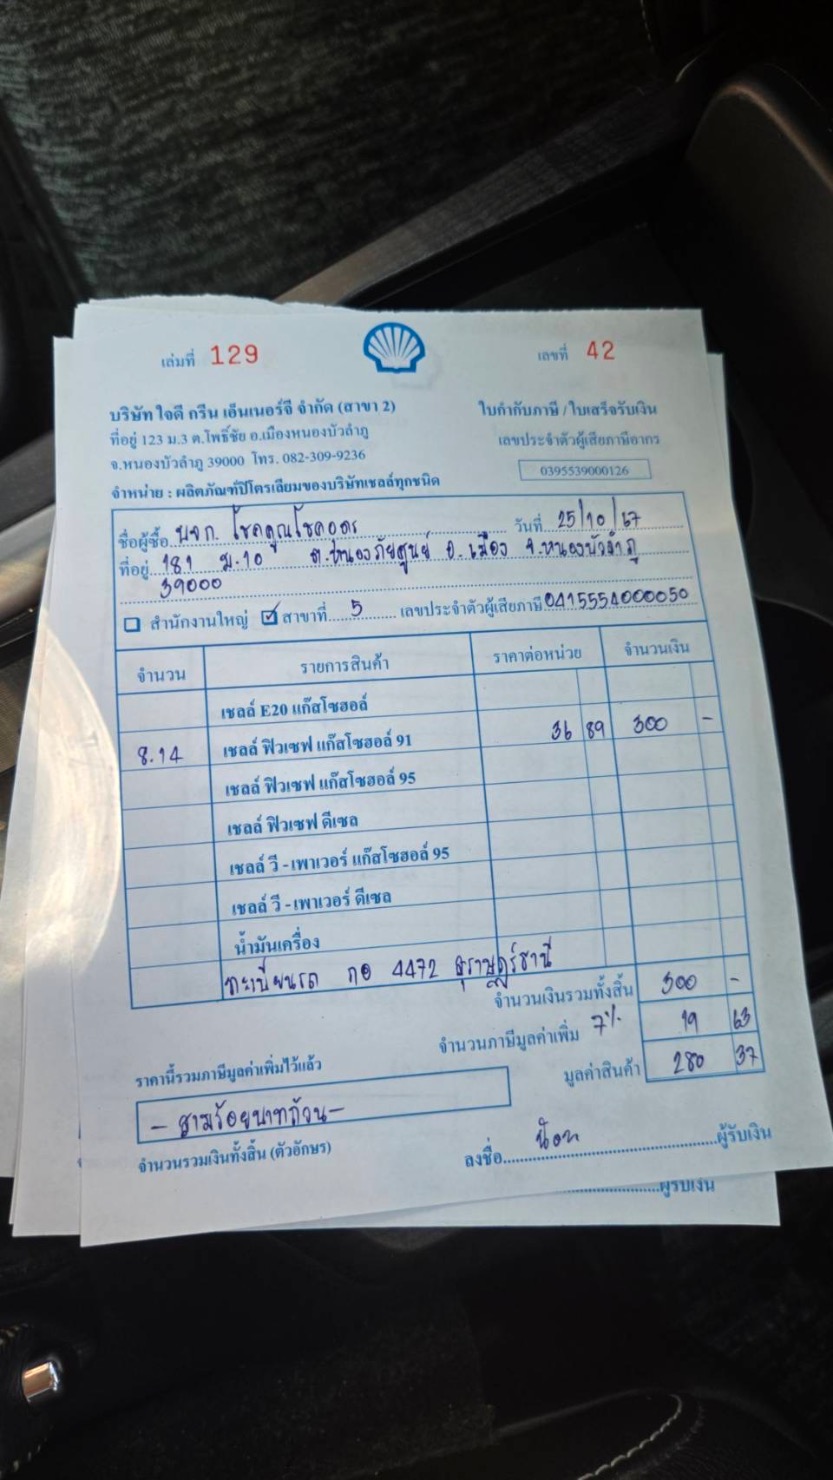 เล่มที่ 129
เลขที่ 42
บริษัท ใจดี กรีน เอ็นเนอร์จี จำกัด (สาขา 2)
ใบกำกับภาษี / ใบเสร็จรับเงิน
ที่อยู่ 123 ม.3 ต.โพธิ์ชัย อ.เมืองหนองบัวลำภู
เลขประจำตัวผู้เสียภาษีอากร
จ.หนองบัวลำภู 39000 โทร. 082-309-9236
0395539000126
จำหน่าย : ผลิตภัณฑ์ปิโตรเลียมของบริษัทเชลล์ทุกชนิด
ชื่อผู้ซื้อ หจก. โชคคูณโชคอดร วันที่ 25/10/67
ที่อยู่ 181 ม.10 ต.หนองภัยศูนย์ อ.เมือง จ.หนองบัวลำภู
39000
สำนักงานใหญ่ สาขาที่ 5 เลขประจำตัวผู้เสียภาษี 0415554000050
จำนวน รายการสินค้า ราคาต่อหน่วย จำนวนเงิน
เชลล์ E20 แก๊สโซฮอล์
8.14 เชลล์ ฟิวเซฟ แก๊สโซฮอล์ 91 36 89 300 -
เชลล์ ฟิวเซฟ แก๊สโซฮอล์ 95
เชลล์ ฟิวเซฟ ดีเซล
เชลล์ วี - เพาเวอร์ แก๊สโซฮอล์ 95
เชลล์ วี - เพาเวอร์ ดีเซล
น้ำมันเครื่อง
ทะเบียนรถ กอ 4472 สุราษฎร์ธานี
จำนวนเงินรวมทั้งสิ้น 300 -
จำนวนภาษีมูลค่าเพิ่ม 7% 19 63
ราคานี้รวมภาษีมูลค่าเพิ่มไว้แล้ว
มูลค่าสินค้า 280 37
- สามร้อยบาทถ้วน -
จำนวนรวมเงินทั้งสิ้น (ตัวอักษร)
ลงชื่อ ผู้รับเงิน
ผู้รับเงิน